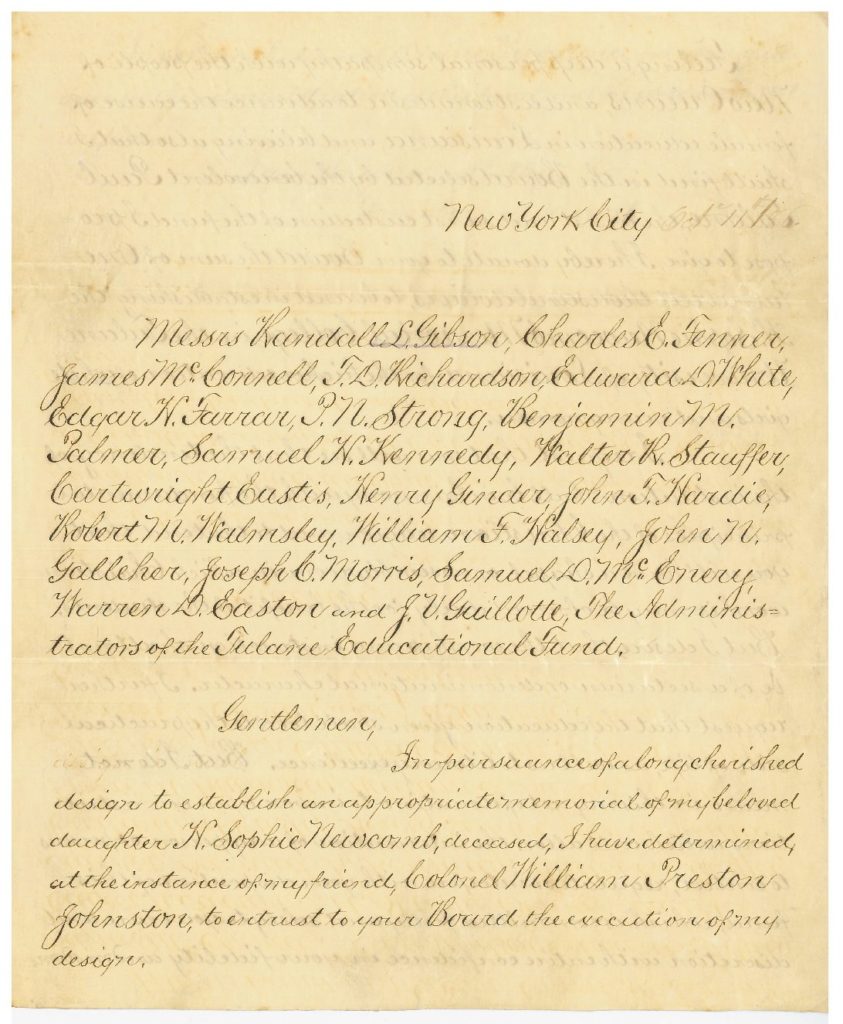 New York City Oct 11th
Messrs Randall L. Gibson, Charles E. Fenner,
James Mc. Connell, T. D. Richardson, Edward D. White,
Edgar H. Farrar, P. N. Strong, Benjamin M.
Palmer, Samuel H. Kennedy, Walter R. Stauffer,
Cartwright Eustis, Henry Ginder, John T. Hardie,
Robert M. Walmsley, William F. Halsey, John N.
Galleher, Joseph C. Morris, Samuel D. Mc. Enery,
Warren D. Easton and J. V. Guillotte, The Adminis=
trators of the Tulane Educational Fund.
Gentlemen,
In pursuance of a long cherished
design to establish an appropriate memorial of my beloved
daughter H. Sophie Newcomb, deceased, I have determined,
at the instance of my friend, Colonel William Preston
Johnston, to entrust to your Board the execution of my
design.